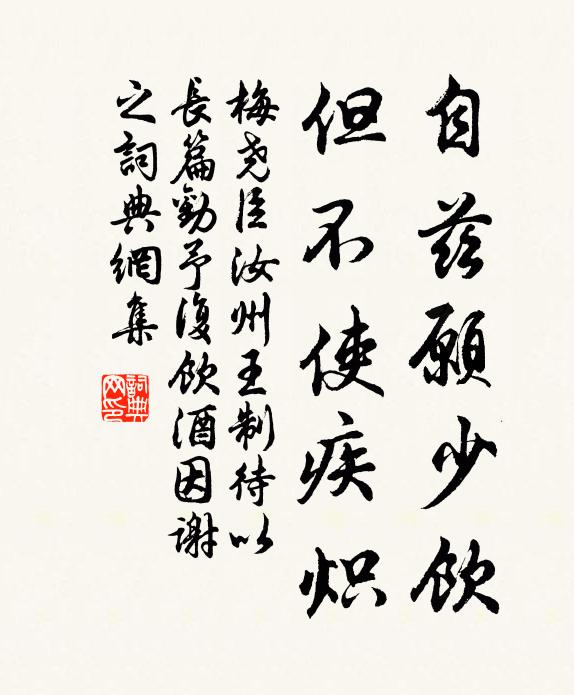 自茲願少飲
但不使疾熾
梅堯臣汝州王制待以
長篇勸予復飲酒因謝
之詞典網集
詞典
网印